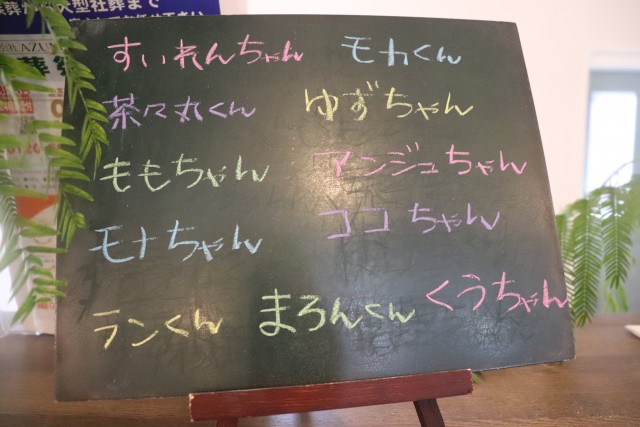 すいれんちゃん モカくん
茶々丸くん ゆずちゃん
ももちゃん アンジュちゃん
モナちゃん ココちゃん
ランくん まろんくん くうちゃん
型社葬まで